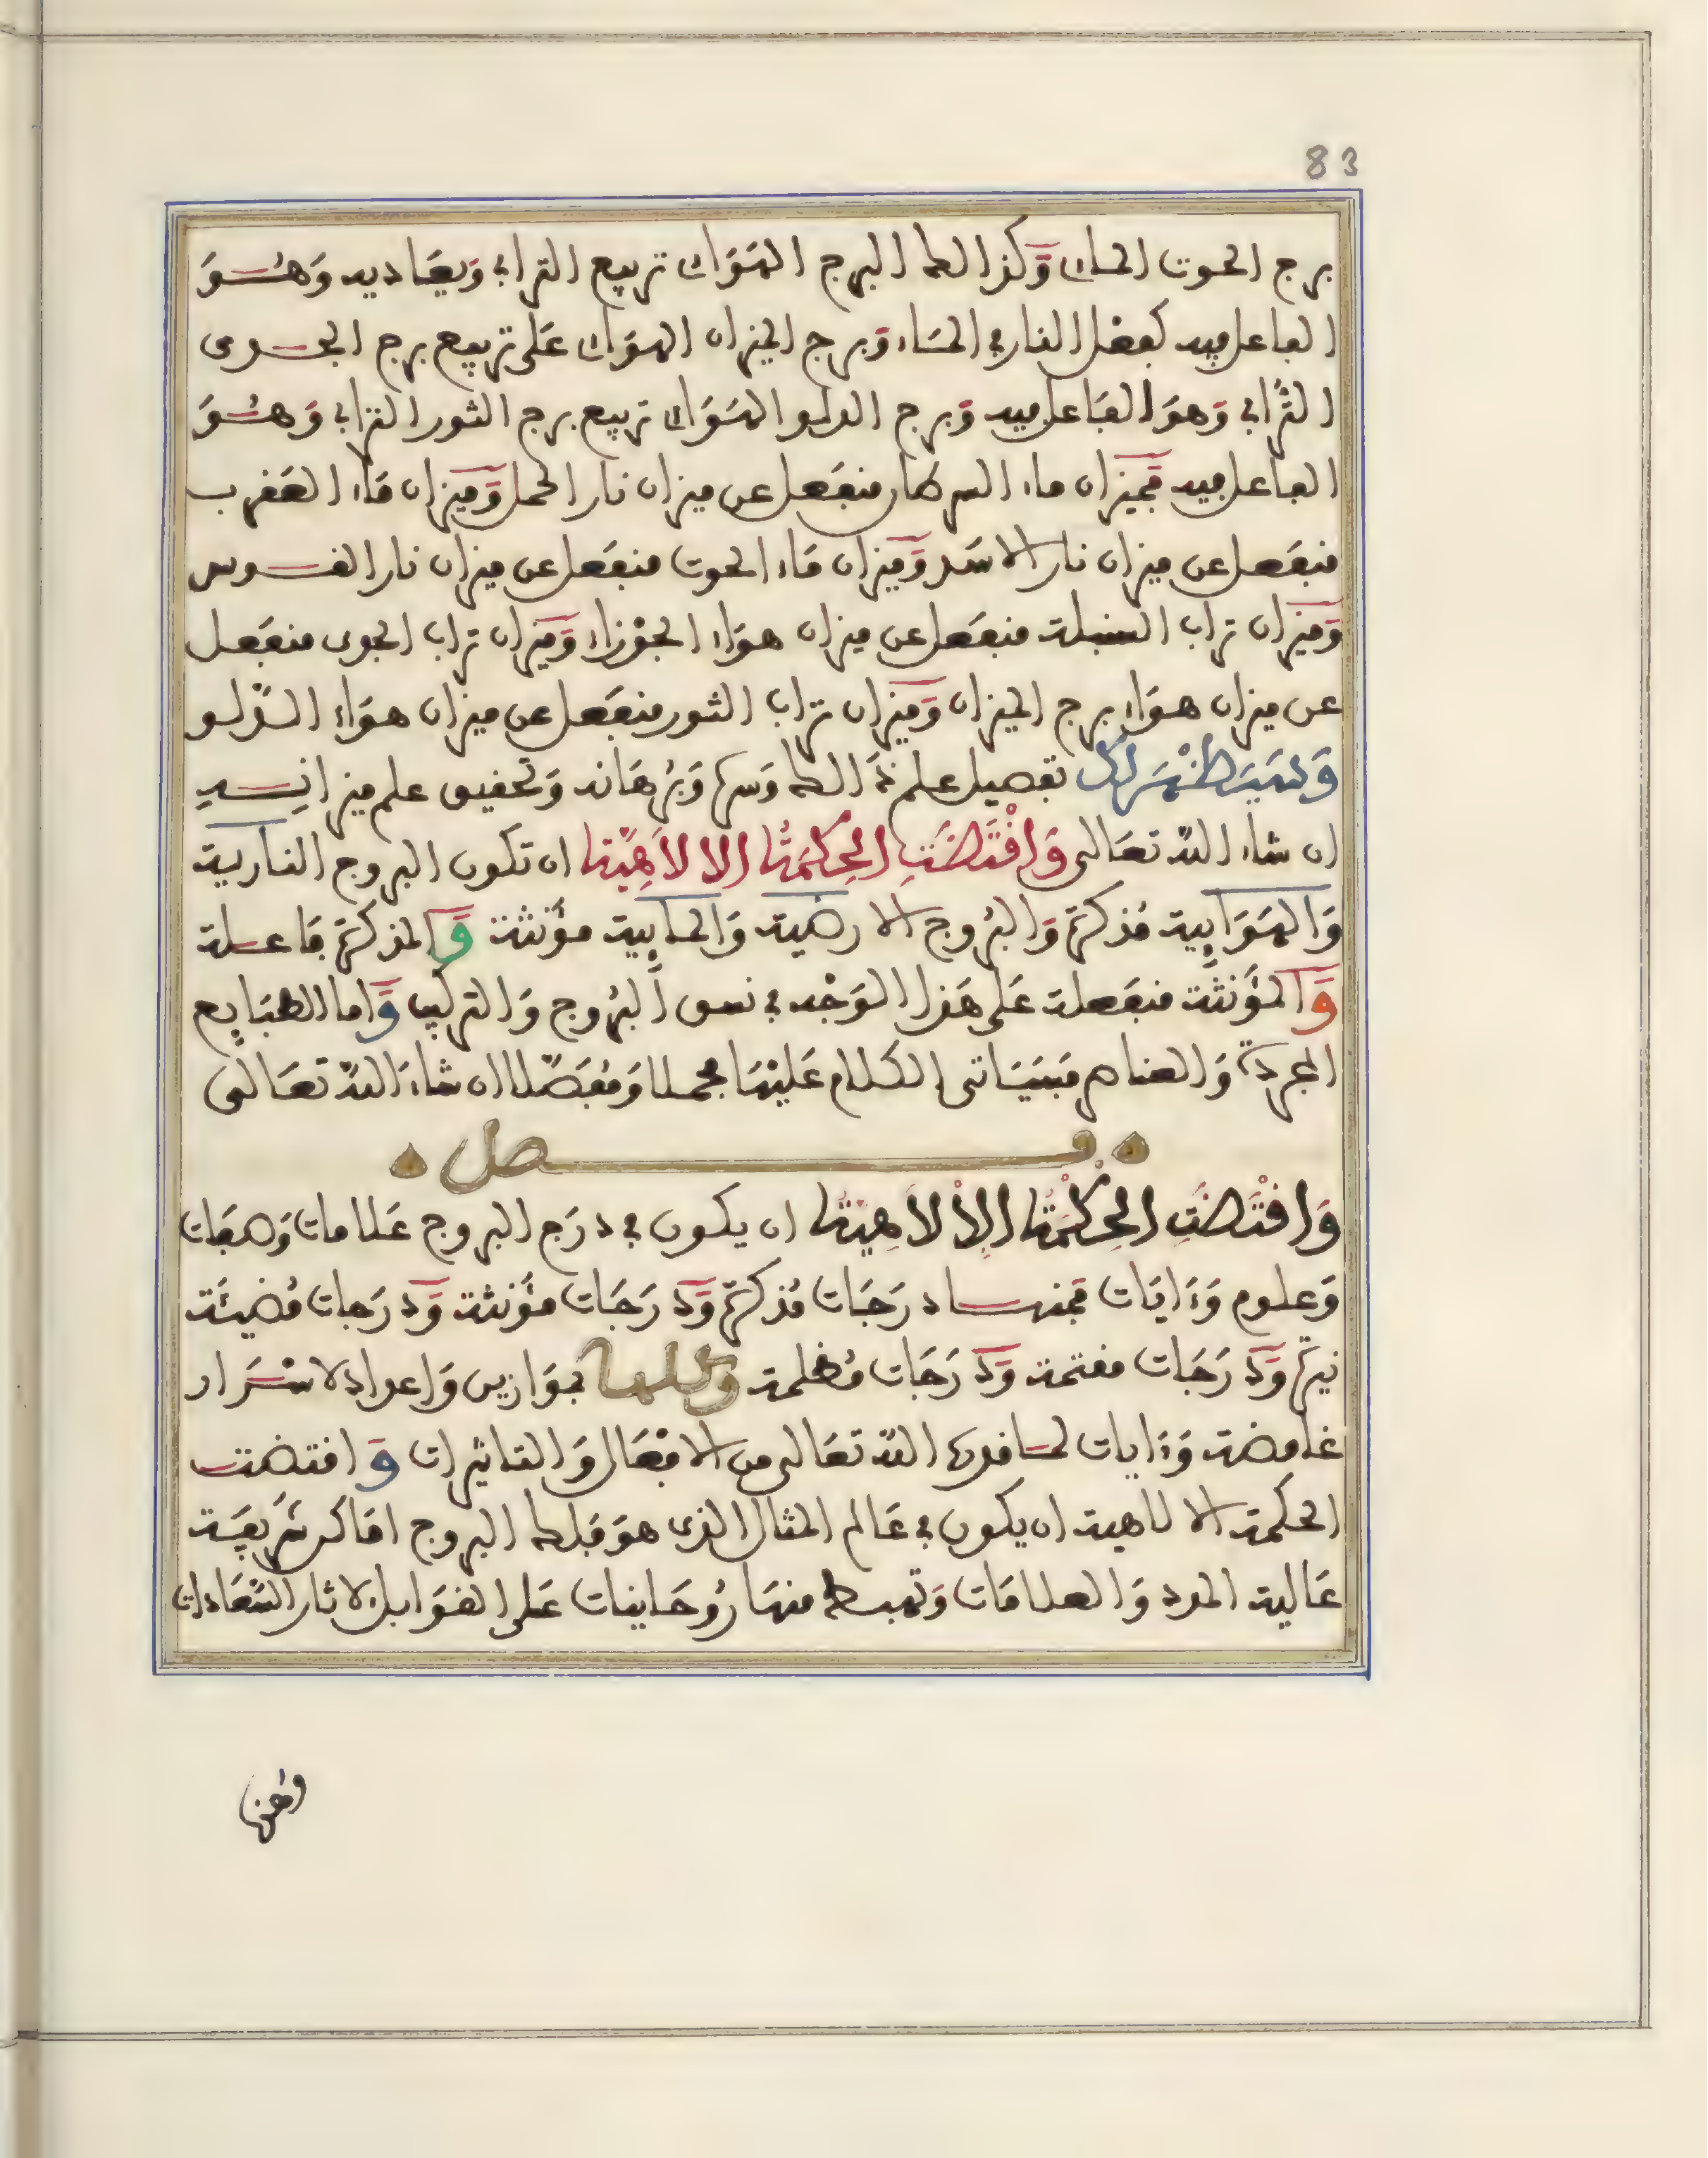 83
برج الحوت المائي وكذالك البرج الهوائي تربيع الترابي ويعاديه وهو
الفاعل فيه كفعل النار في الماء وبرج الميزان الهوائي على تربيع برج الجدي
الترابي وهو الفاعل فيه وبرج الدلو الهوائي تربيع برج الثور الترابي وهو
الفاعل فيه فميزان ماء السرطان منفعل عن ميزان نار الحمل وميزان ماء العقرب
منفعل عن ميزان نار الاسد وميزان ماء الحوت منفعل عن ميزان نار القوس
وميزان تراب السنبلة منفعل عن ميزان هواء الجوزاء وميزان تراب الجدي منفعل
عن ميزان هواء برج الميزان وميزان تراب الثور منفعل عن ميزان هواء الدلو
وسيظهر لك تفصيل علم ذالك وسره وبرهانه وتحقيق علم ميزانه
ان شاء الله تعالى وَاقْتَضَتِ الحِكمَةُ الالاَهِيّة ان تكون البروج النارية
والهوايية مذكرة والبروج الارضية والمايية مؤنثة والمذكرة فاعلة
والمؤنثة منفعلة على هذا الوجه في نسق البروج والتركيب واما الطبايع
المجردة والعناصر فسياتي الكلام عليها مجملا ومفصلا ان شاء الله تعالى
فصل
وَاقْتَضَتِ الحِكْمَةُ الالاهِيَة ان يكون في درج البروج علامات وصفات
وعلوم وءايات فمنها درجات مذكرة ودرجات مؤنثة ودرجات مضيئة
نيرة ودرجات مقتمة ودرجات مظلمة وكلها بموازين واعداد لاسرار
غامضة وءايات لما قدره الله تعالى من الافعال والتاثيرات واقتضت
الحكمة الالاهية ان يكون في عالم المثال الذي هو فلك البروج اماكن شريفة
عالية المدد والعلامات وتهبط منها روحانيات على القوابل لاثار السعادات
ومنها